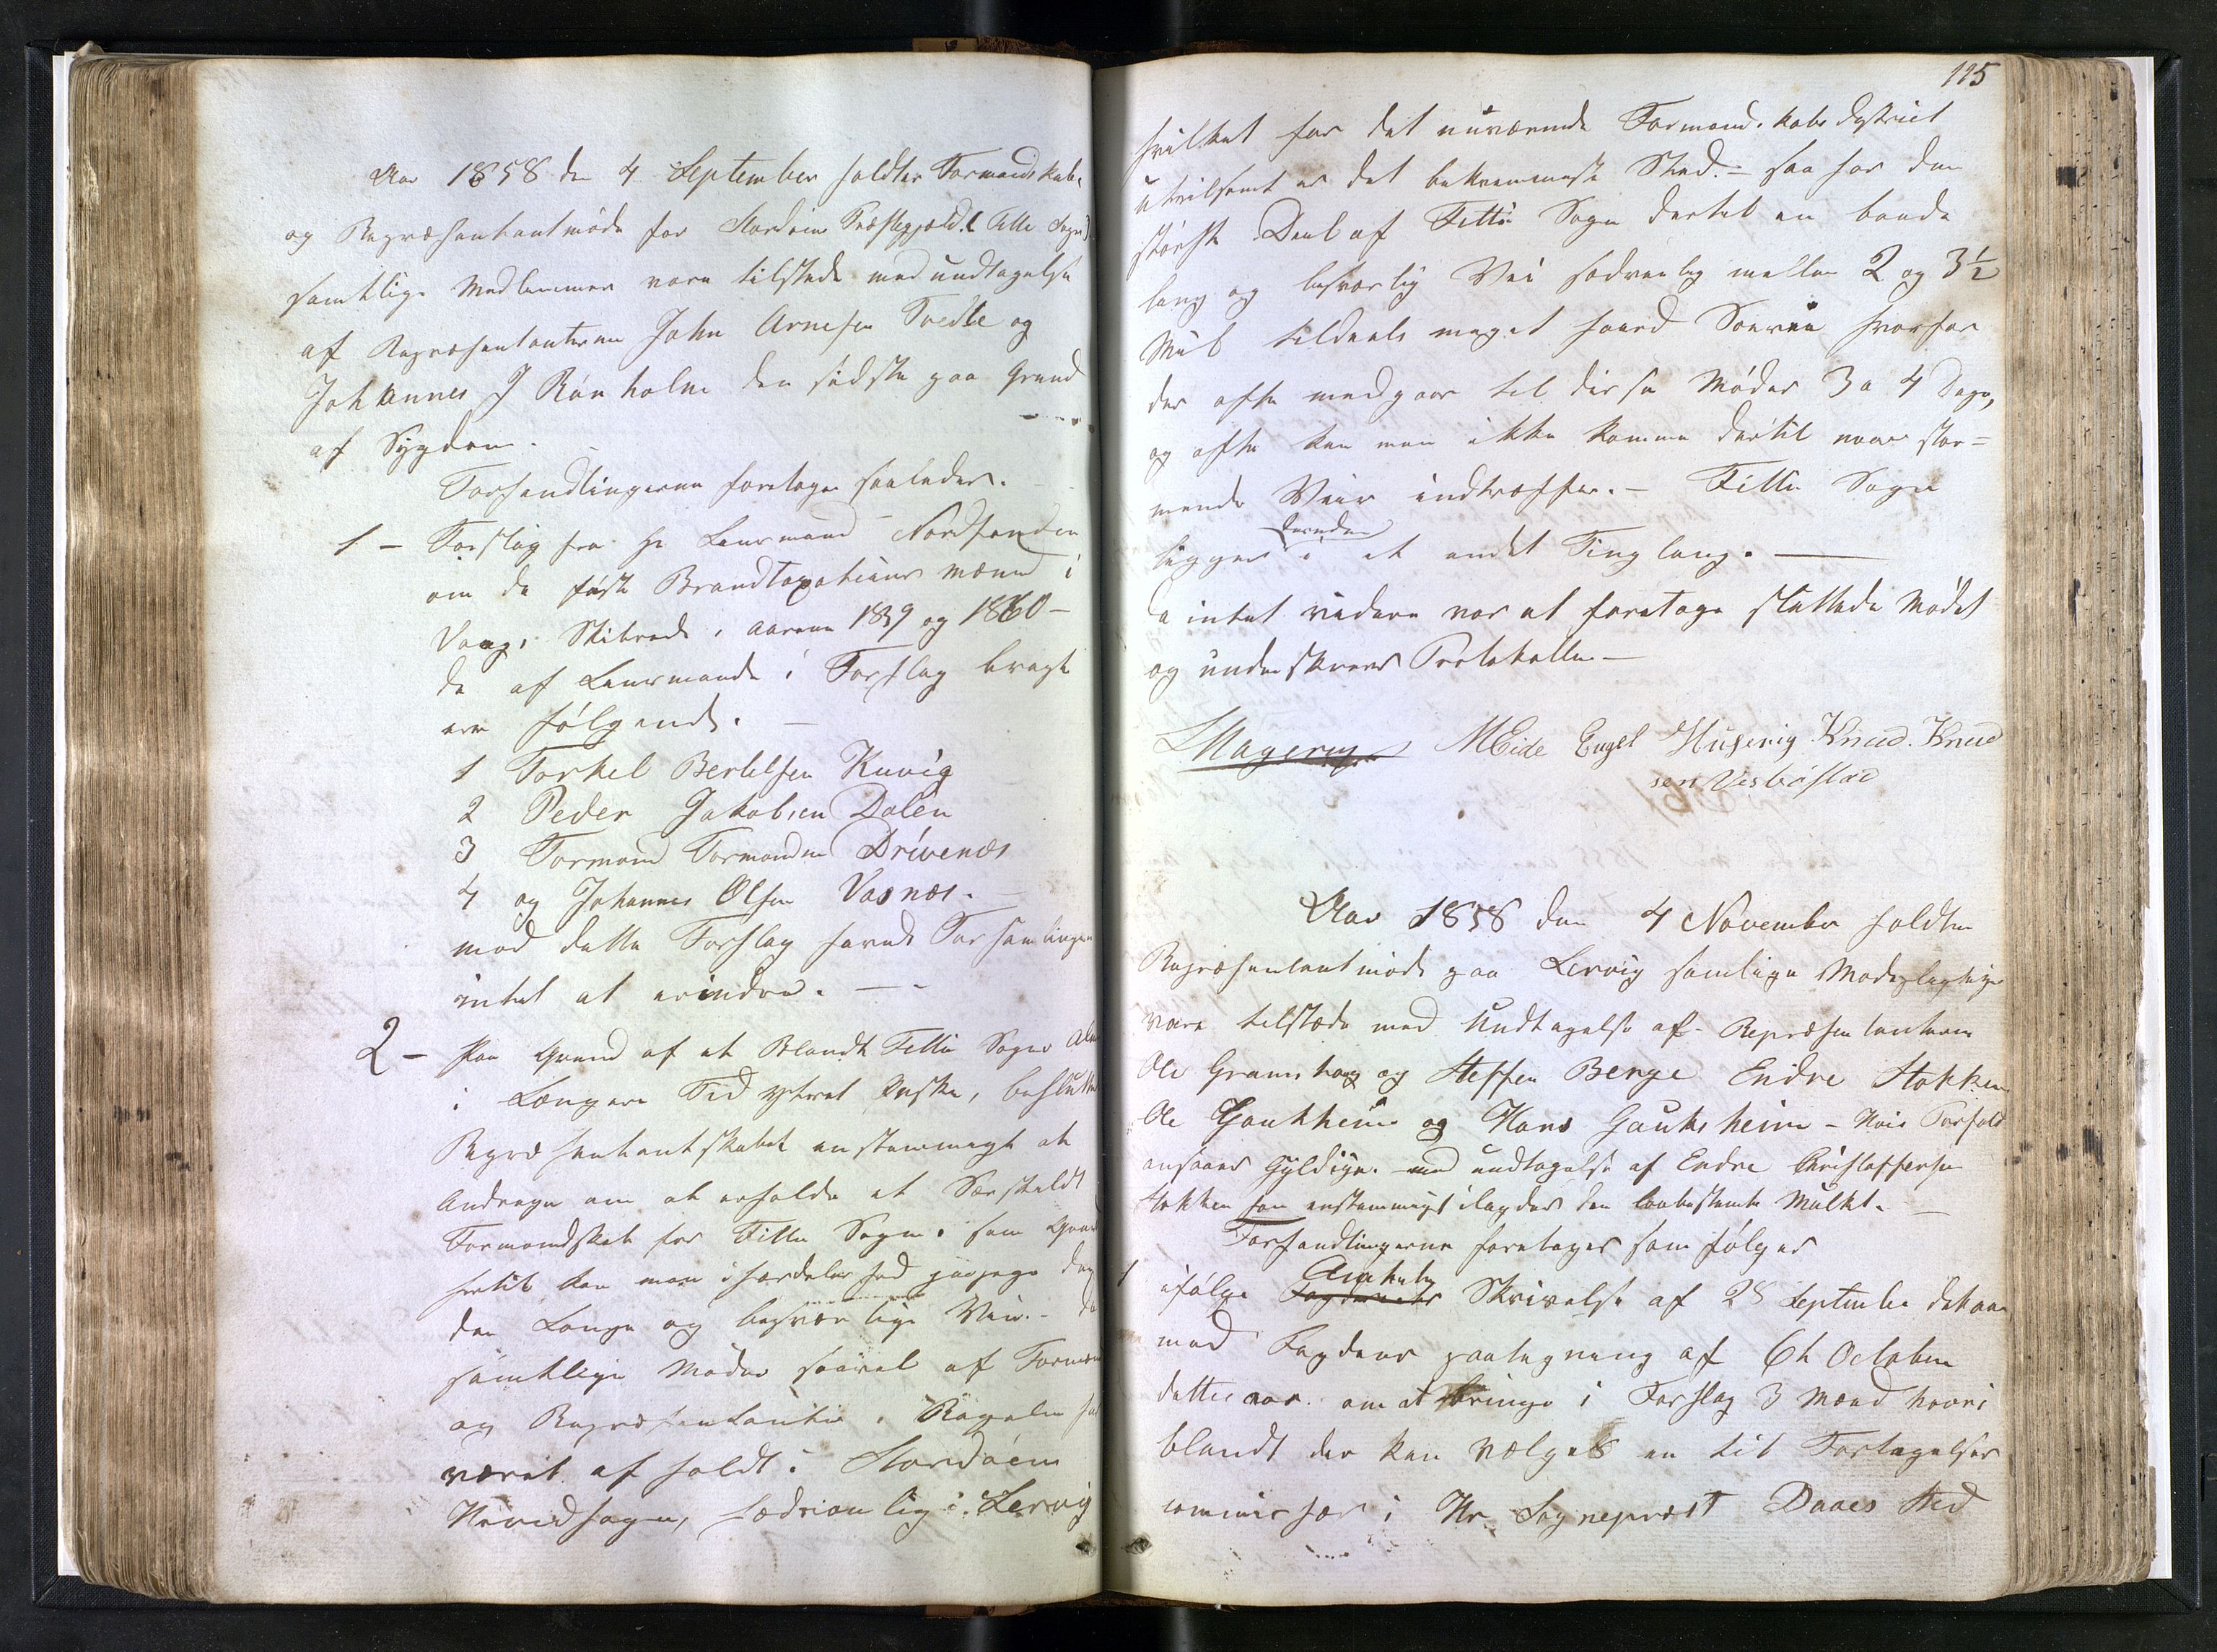 Aar 1858 den 4 September holdtes Formandskabs
og Repræsentantmöde for Stordöens Præstegjæld. (Fitie Sogn)
samtlige Medlemmer vare tilstede med undtagelse
af Repræsentanterne John Arnesen Tvedte og
Johannes J Rönholm den sidste paa Grund
af Sygdom.
Forhandlingerne foretoges saaledes.
1 - Forslag fra Hr Lensmand
om de faste Brandtaxations Mænd i
Vaags Skibrede i Aarene 1859 og 1860 -
de af Lensmanden i Forslag bragte
ere fölgende. -
1 Torkel Bertelsen Kuvig
2 Peder Jakobsen Dalen
3 Tormond Tormondsen Drivenæs
4 og Johannes Olsen Vasnæs. -
mod dette Forslag havde Forsamlingen
intet at erindre. -
2 - Paa Grund af et Blandt Fitie Sogns
i Længere Tid yttret Önske, besluttede
Repræsentantskabet enstemmigt at
Andrage om at erholde et Særskildt
Formandskab for Fitie Sogn. som Grund
hertil kan man isærdeleshed
den Lange og besværlige Vei. - da
samtlige Möder saavel af Formænd
og Repræsentanter i Regelen har
været afholdt i Stordöens
Hovedsogn, sædvanlig i Lervig
115
hvilket for det nuværende Formandskabs Dystrict
utvilsomt er det bekvemmeste Sted. - saa har den
störste Deel af Fitie Sogn dertil en baade
lang og besværlig Vei sædvanlig mellem 2 og 3½
Mil tildeels meget haard Soevei hvorfor
der ofte medgaar til disse Möder 3 a 4 Dage,
og ofte kan man ikke komme dertil naar stor=
mende Veir indtræffer. - Fitie Sogn
desuden
ligger i et andet Tinglaug. -
da intet videre var at foretage sluttede Mödet
og underskrevs Protokollen -
MEide Engel Husevig Knud. Knud
sen Vestböstad
Aar 1858 den 4 November holdtes
Repræsentantmöde paa Lervig samtlige Modepligtige
vare tilstæde med Undtagelse af Repræsentanterne
Ole Gramshaug og Steffen Berge Endre Stokken
Ole Gaukheim og Hans Gauksheim - Hvis Forfald
ansaaes Gyldige. - med undtagelse af Endre Christoffersen
Stokken som enstemmigt ilagdes den lovbestemte Mulkt. -
Forhandlingerne foretoges som fölger
Amtets
1 ifölge Fogderiets Skrivelse af 28 September dette aar
med Fogdens paategning af 6te October
dettes aar. om at bringe i Forslag 3 Mænd hvori
blandt der kan vælges en til Forligelses
commissær i Hr. Sogneprest Daaes Sted